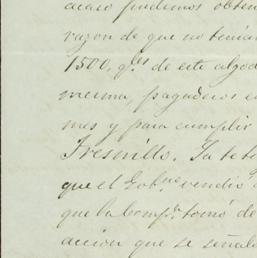 acaso pudimos obten
razon de que no tenian
1500, q.es de este algod
mesma, pagaderos e
mes y para cumplir
Fresnillo. Ya te
que el Gob.no vendió
que la comp.a tomó de
accion que se señal